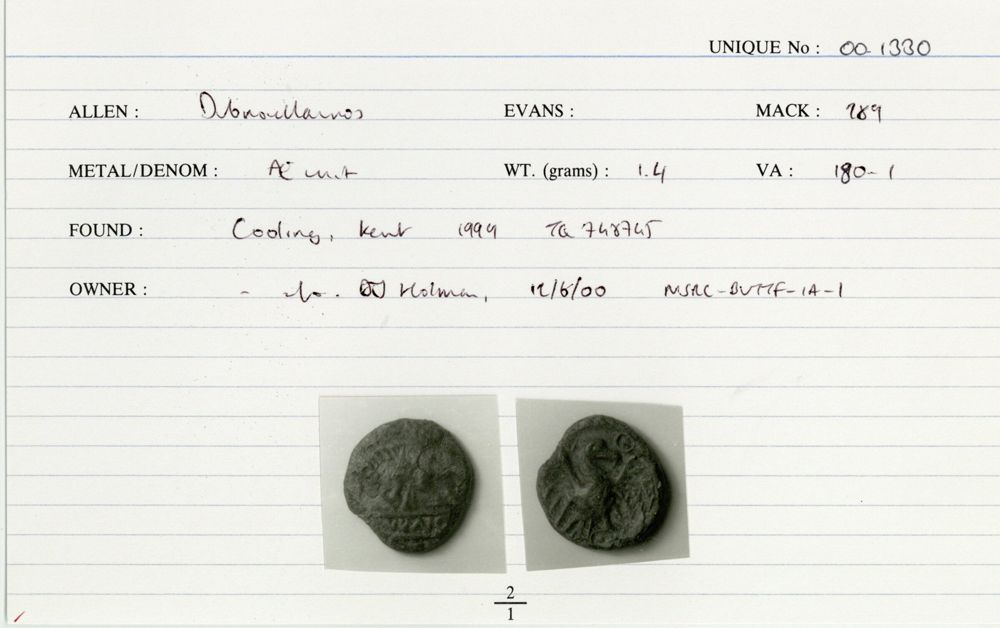 UNIQUE No : 00-1330
ALLEN : Dubnovellaunos EVANS : MACK : 289
METAL/DENOM : Æ unit WT. (grams) : 1.4 VA : 180-1
FOUND : Cooling, Kent 1999 TQ 748745
OWNER : - info. DJ Holman, 12/6/00 MSRC-BVTTF-IA-1
2
1